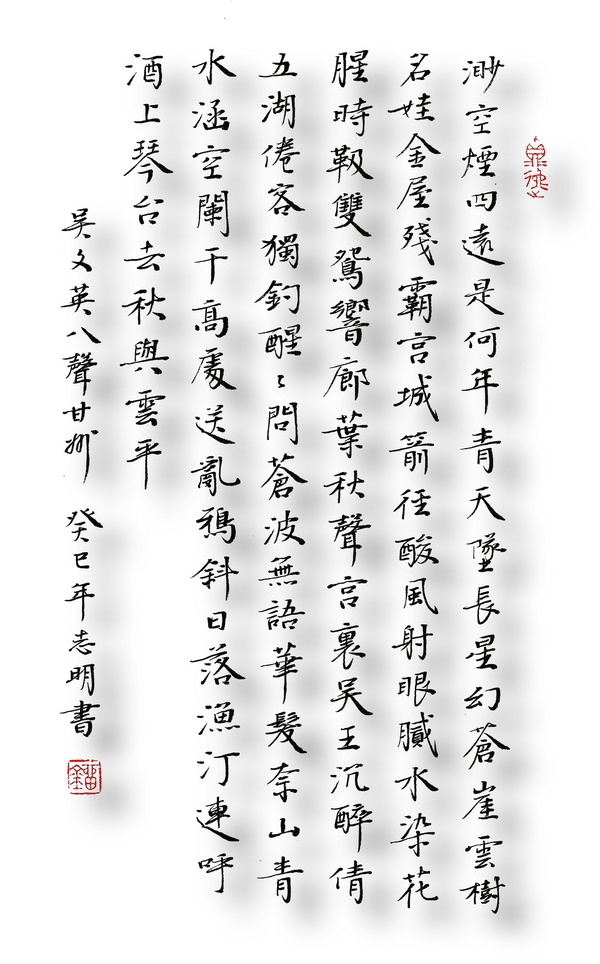 渺空煙四遠是何年青天墜長星幻蒼崖雲樹
名娃金屋殘霸宮城箭径酸風射眼膩水染花
腥時靸雙鴛響廊葉秋聲宮裏吴王沉醉倩
五湖倦客獨釣醒〻問蒼波無語華髮奈山青
水涵空闌干高處送亂鴉斜日落漁汀連呼
酒上琴台去秋與雲平
吴文英八聲甘州 癸巳年志明書